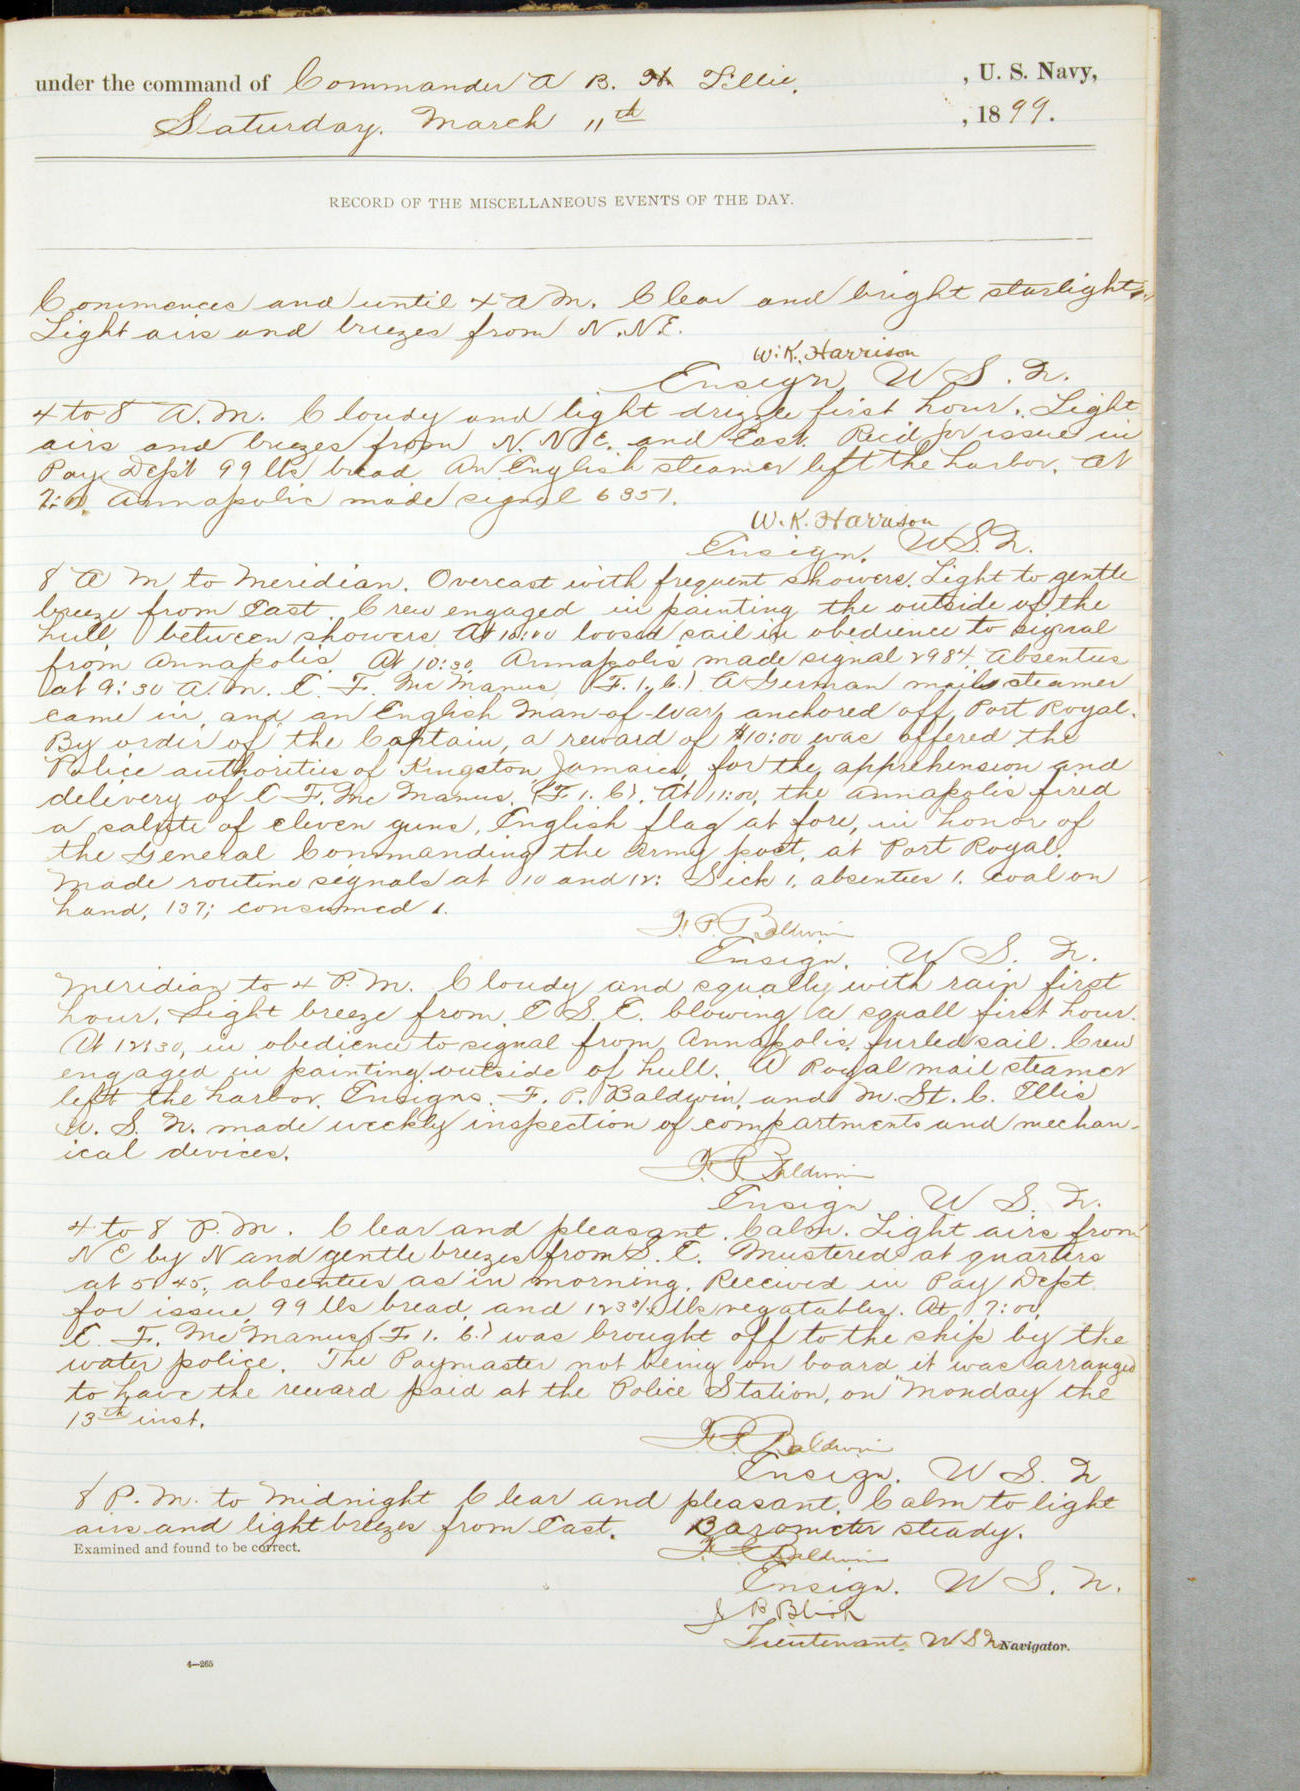 under the command of Commander A B. H Lillie. , U. S. Navy,
Saturday. March 11th , 1899.
RECORD OF THE MISCELLANEOUS EVENTS OF THE DAY.
Commences and until 4 A M. Clear and bright starlight
Light airs and breezes from N.NE.
W.K. Harrison
Ensign, U S. N.
4 to 8 A.M. Cloudy and light drizzle first hour. Light
airs and breezes from N. N E. and East. Rec'd for issue in
Pay Dep't 99 lbs bread. An English steamer left the harbor. At
Annapolis made signal 6351.
W.K. Harrison
Ensign. U.S.N.
8 A M to Meridian. Overcast with frequent showers. Light to gentle
breeze from East. Crew engaged in painting the outside of the
hull, between showers. At 10:00 loosed sail in obedience to signal
from Annapolis. At 10:30 Annapolis made signal 2984. Absentees
at 9:30 A.M. C. F. McManus (F.1.C.) A German mail steamer
came in, and an English Man-of-War, anchored off Port Royal.
By order of the Captain, a reward of $10:00 was offered the
Police authorities of Kingston Jamaica, for the apprehension and
delivery of C F. Mc Manus. (F 1. C). At 11:00, the Annapolis fired
a salute of eleven guns, English flag at fore, in honor of
the General Commanding the Army post, at Port Royal.
Made routine signals at 10 and 12: Sick 1. absentees 1. coal on
hand, 137; consumed 1.
F. P. Baldwin
Ensign. U S. N.
Meridian to 4 P.M. Cloudy and squally with rain first
hour. Light breeze from E S. E. blowing a squall first hour.
At 12:30, in obedience to signal from Annapolis, furled sail. Crew
engaged in painting outside of hull. A Royal mail steamer
left the harbor. Ensigns. F. P. Baldwin, and M. St. C. Ellis
U. S. N. made weekly inspection of compartments and mechan-
ical devices.
F. P. Baldwin
Ensign U S. N.
4 to 8 P.M. Clear and pleasant. Calm. Light airs from
N E by N and gentle breezes from S. E. Mustered at quarters
at 5:45, absentees as in morning. Received in Pay Dept.
for issue, 99 lbs bread, and 123 3/4 lbs vegatables. At 7:00,
C. F. Mc Manus (F 1. C.) was brought off to the ship by the
water police. The Paymaster not being on board it was arranged
to have the reward paid at the Police Station, on Monday the
13th inst.
F. P. Baldwin
Ensign. U S. N
8 P.M. to Midnight Clear and pleasant. Calm to light
airs and light breezes from East. Barometer steady.
Examined and found to be correct.
F. P. Baldwin
Ensign. U S. N.
Lieutenant U S N Navigator.
4—265